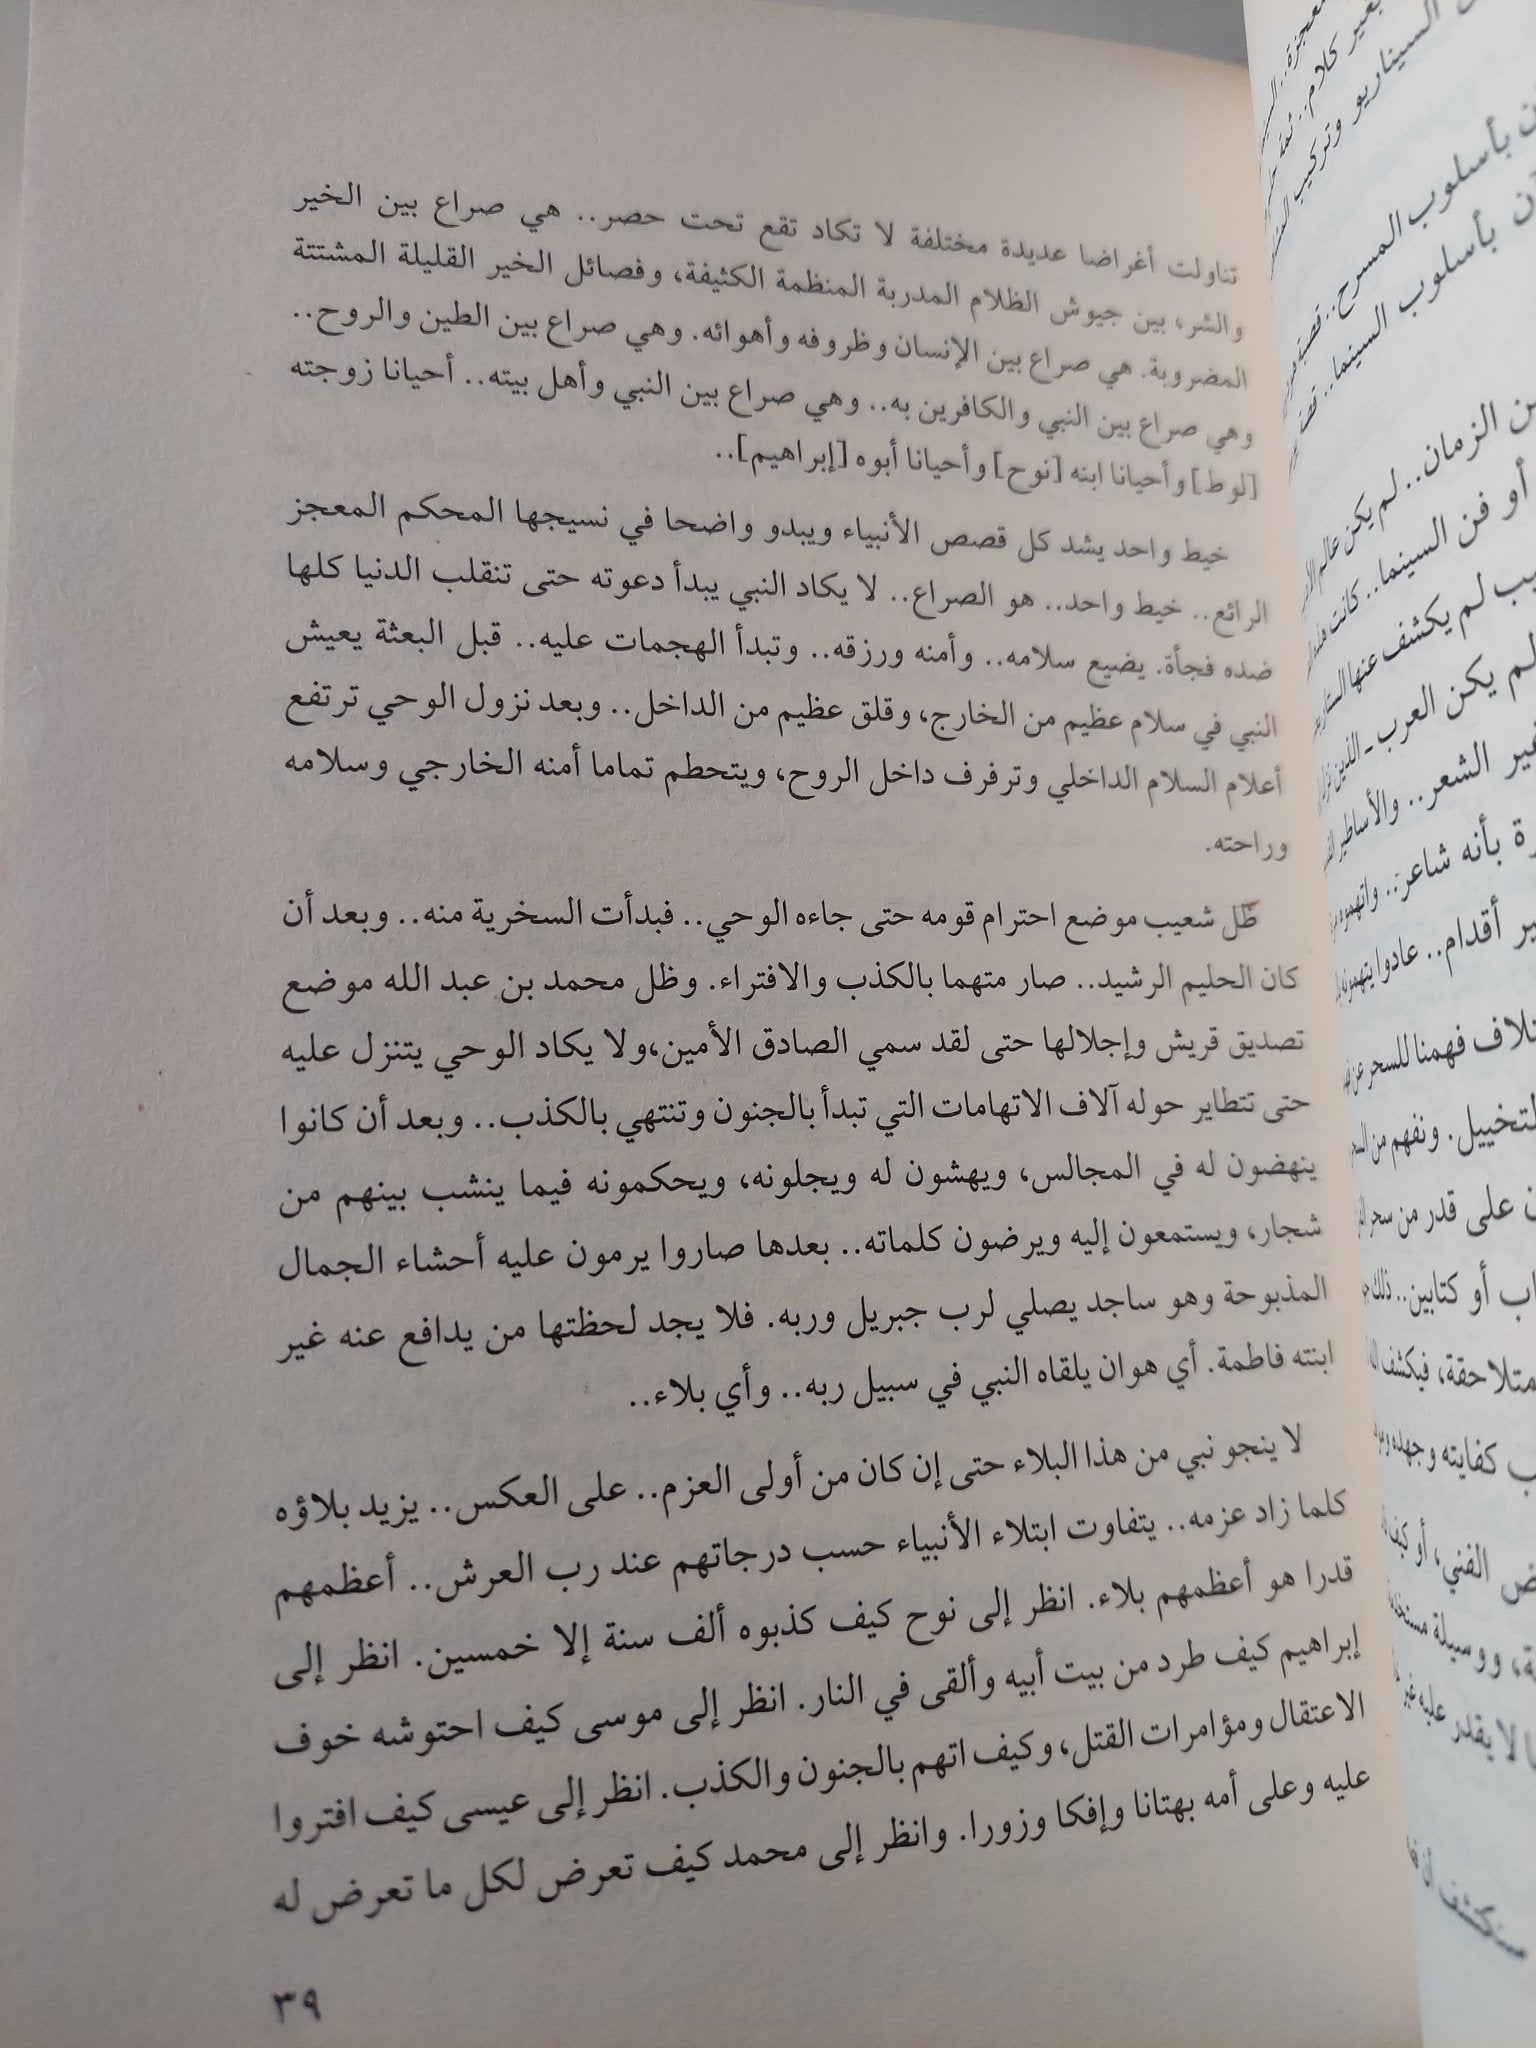 تناولت أغراضا عديدة مختلفة لا تكاد تقع تحت حصر.. هي صراع بين الخير
والشر، بين جيوش الظلام المدربة المنظمة الكثيفة، وفصائل الخير القليلة المشتتة
المضروبة. هي صراع بين الإنسان وظروفه وأهوائه. وهي صراع بين الطين والروح..
وهي صراع بين النبي والكافرين به.. وهي صراع بين النبي وأهل بيته.. أحيانا زوجته
[لوط] وأحيانا ابنه [نوح] وأحيانا أبوه [إبراهيم]..
خيط واحد يشد كل قصص الأنبياء ويبدو واضحا في نسيجها المحكم المعجز
الرائع.. خيط واحد.. هو الصراع.. لا يكاد النبي يبدأ دعوته حتى تنقلب الدنيا كلها
ضده فجأة. يضيع سلامه.. وأمنه ورزقه.. وتبدأ الهجمات عليه.. قبل البعثة يعيش
النبي في سلام عظيم من الخارج، وقلق عظيم من الداخل.. وبعد نزول الوحي ترتفع
أعلام السلام الداخلي وترفرف داخل الروح، ويتحطم تماما أمنه الخارجي وسلامه
وراحته.
ظل شعيب موضع احترام قومه حتى جاءه الوحي.. فبدأت السخرية منه.. وبعد أن
كان الحليم الرشيد.. صار متهما بالكذب والافتراء. وظل محمد بن عبد الله موضع
تصديق قريش وإجلالها حتى لقد سمي الصادق الأمين،ولا يكاد الوحي يتنزل عليه
حتى تتطاير حوله آلاف الاتهامات التي تبدأ بالجنون وتنتهي بالكذب.. وبعد أن كانوا
ينهضون له في المجالس، ويهشون له ويجلونه، ويحكمونه فيما ينشب بينهم من
شجار، ويستمعون إليه ويرضون كلماته.. بعدها صاروا يرمون عليه أحشاء الجمال
المذبوحة وهو ساجد يصلي لرب جبريل وربه. فلا يجد لحظتها من يدافع عنه غير
ابنته فاطمة. أي هوان يلقاه النبي في سبيل ربه.. وأي بلاء..
لا ينجو نبي من هذا البلاء حتى إن كان من أولى العزم.. على العكس.. يزيد بلاؤه
كلما زاد عزمه.. يتفاوت ابتلاء الأنبياء حسب درجاتهم عند رب العرش.. أعظمهم
قدرا هو أعظمهم بلاء. انظر إلى نوح كيف كذبوه ألف سنة إلا خمسين. انظر إلى
إبراهيم كيف طرد من بيت أبيه وألقى في النار. انظر إلى موسى كيف احتوشه خوف
الاعتقال ومؤامرات القتل، وكيف اتهم بالجنون والكذب. انظر إلى عيسى كيف افتروا
عليه وعلى أمه بهتانا وإفكا وزورا. وانظر إلى محمد كيف تعرض لكل ما تعرض له
٣٩
السيناريو وتركيب
بأسلوب المسرح.. قصة
بأسلوب السينما.. قصة
الزمان.. لم يكن عالم
أو فن السينما.. كانت
لم يكشف عنها الستار
لم يكن العرب - الذين
الشعر.. والأساطير
بأنه شاعر.. واتهموه
أقدام.. عادوا يتهمونه
فهمنا للسحر عن
التخييل. ونفهم من السحر
على قدر من سحر
أو كتابين.. ذلك
متلاحقة، فيكشف
كفايته وجهده
الفني، أو كيف
ووسيلة
لا يقدر عليه غير